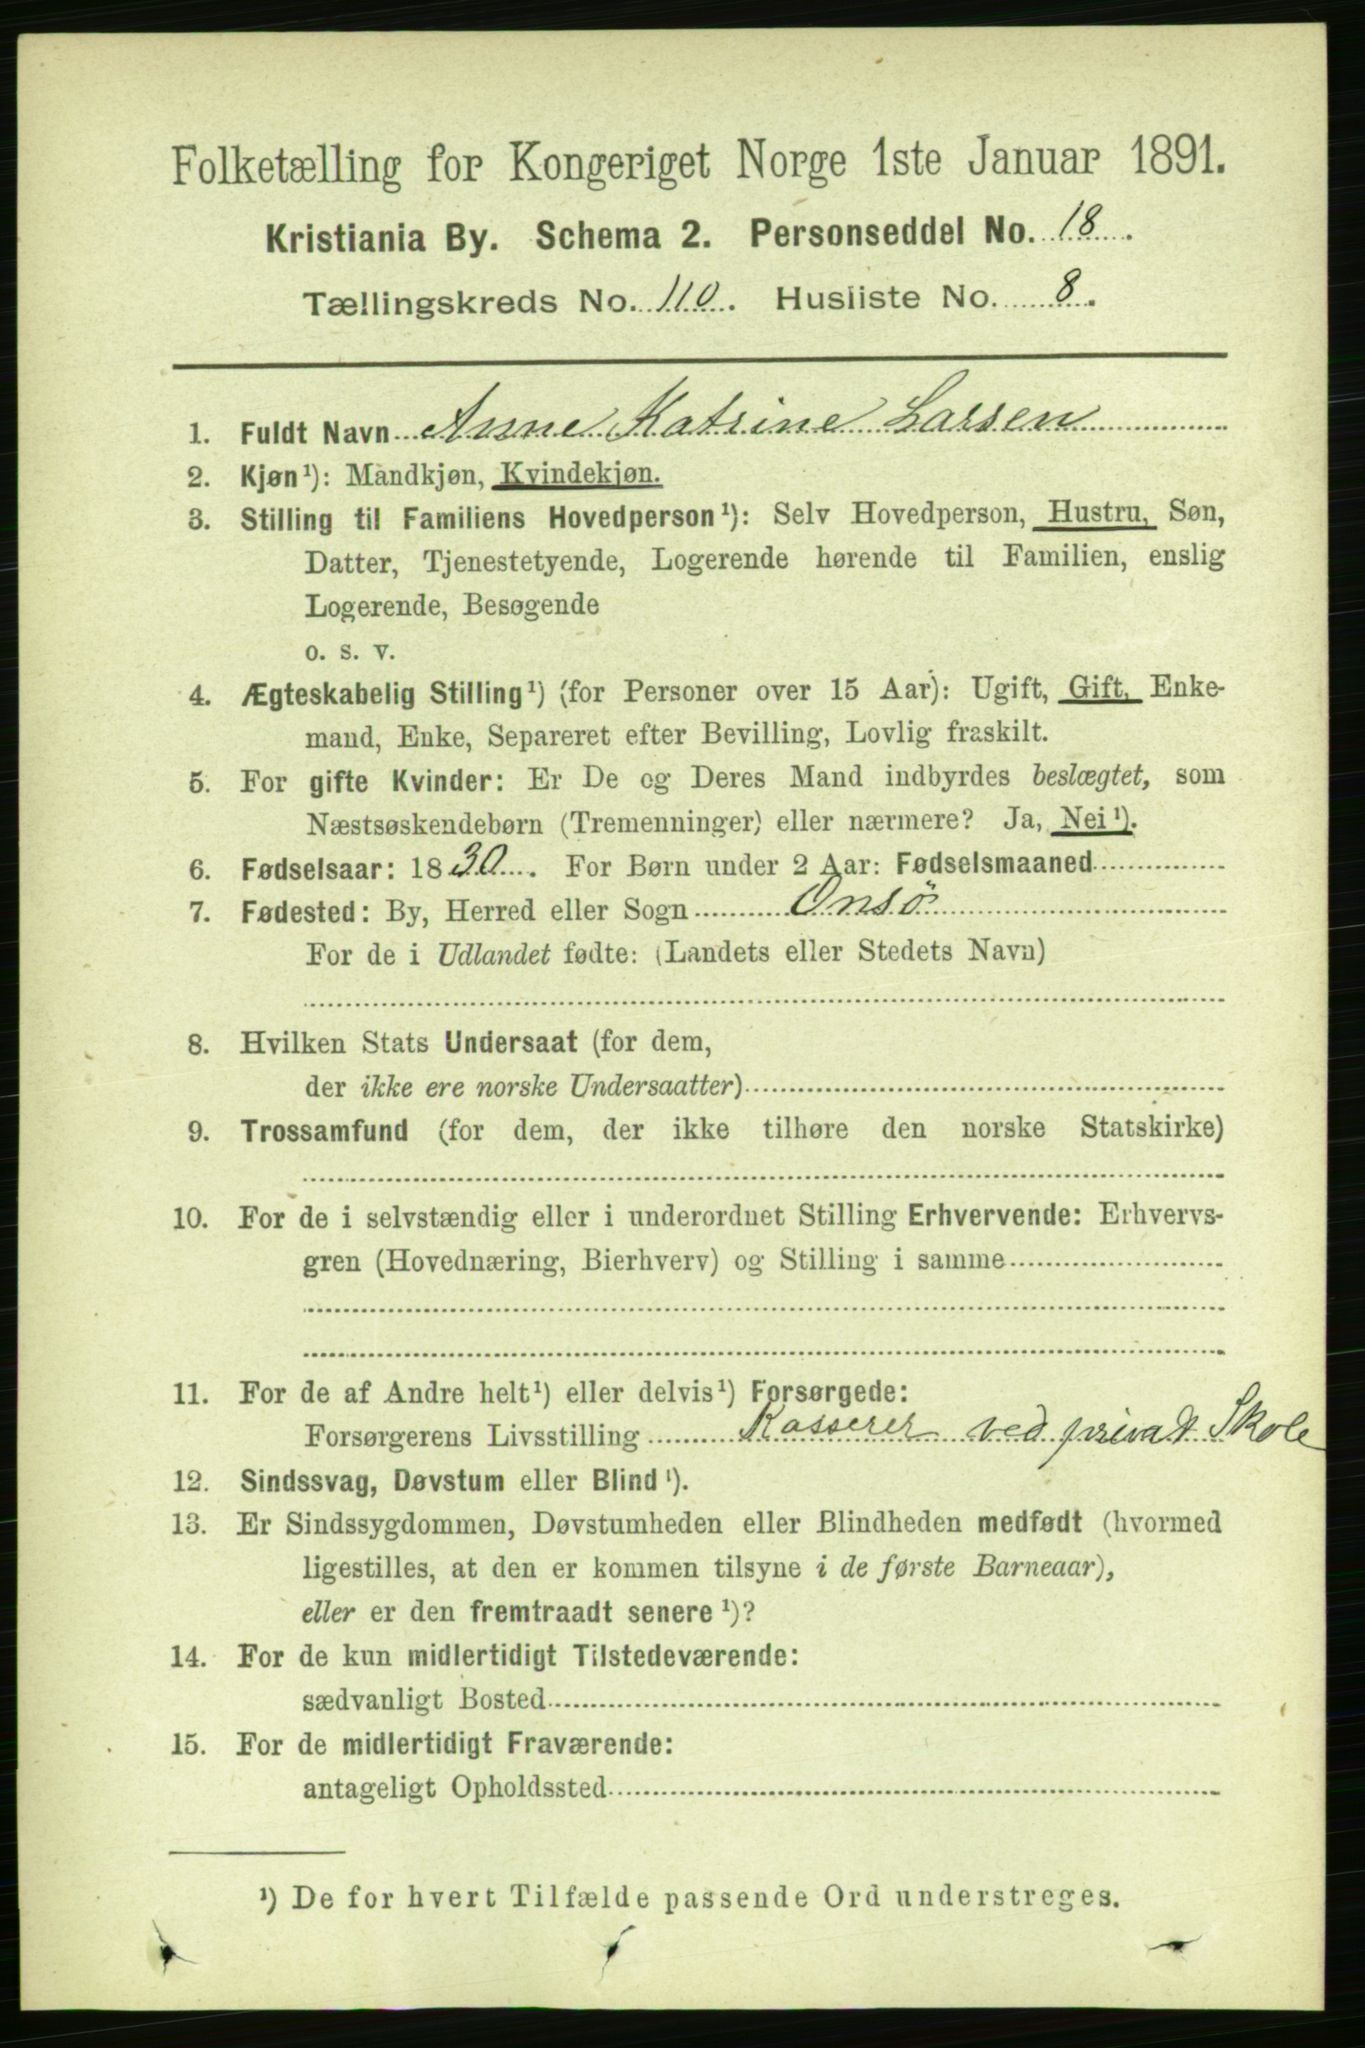 Folketælling for Kongeriget Norge 1ste Januar 1891.
Kristiania By. Schema 2. Personseddel No. 18.
Tællingskreds No. 110. Husliste No. 8.
1. Fuldt Navn Anne Katrine Larsen
2. Kjøn¹): Mandkjøn, Kvindekjøn.
3. Stilling til Familiens Hovedperson¹): Selv Hovedperson, Hustru, Søn,
Datter, Tjenestetyende, Logerende hørende til Familien, enslig
Logerende, Besøgende
o. s. v.
4. Ægteskabelig Stilling¹) (for Personer over 15 Aar): Ugift, Gift, Enke-
mand, Enke, Separeret efter Bevilling, Lovlig fraskilt.
5. For gifte Kvinder: Er De og Deres Mand indbyrdes beslægtet, som
Næstsøskendebørn (Tremenninger) eller nærmere? Ja, Nei¹).
6. Fødselsaar: 1830. For Børn under 2 Aar: Fødselsmaaned
7. Fødested: By, Herred eller Sogn Onsö
For de i Udlandet fødte: (Landets eller Stedets Navn)
8. Hvilken Stats Undersaat (for dem,
der ikke ere norske Undersaatter)
9. Trossamfund (for dem, der ikke tilhøre den norske Statskirke)
10. For de i selvstændig eller i underordnet Stilling Erhvervende: Erhvervs-
gren (Hovednæring, Bierhverv) og Stilling i samme
11. For de af Andre helt¹) eller delvis¹) Forsørgede:
Forsørgerens Livsstilling Kasserer ved privat Skole
12. Sindssvag, Døvstum eller Blind¹).
13. Er Sindssygdommen, Døvstumheden eller Blindheden medfødt (hvormed
ligestilles, at den er kommen tilsyne i de første Barneaar),
eller er den fremtraadt senere¹)?
14. For de kun midlertidigt Tilstedeværende:
sædvanligt Bosted
15. For de midlertidigt Fraværende:
antageligt Opholdssted
¹) De for hvert Tilfælde passende Ord understreges.